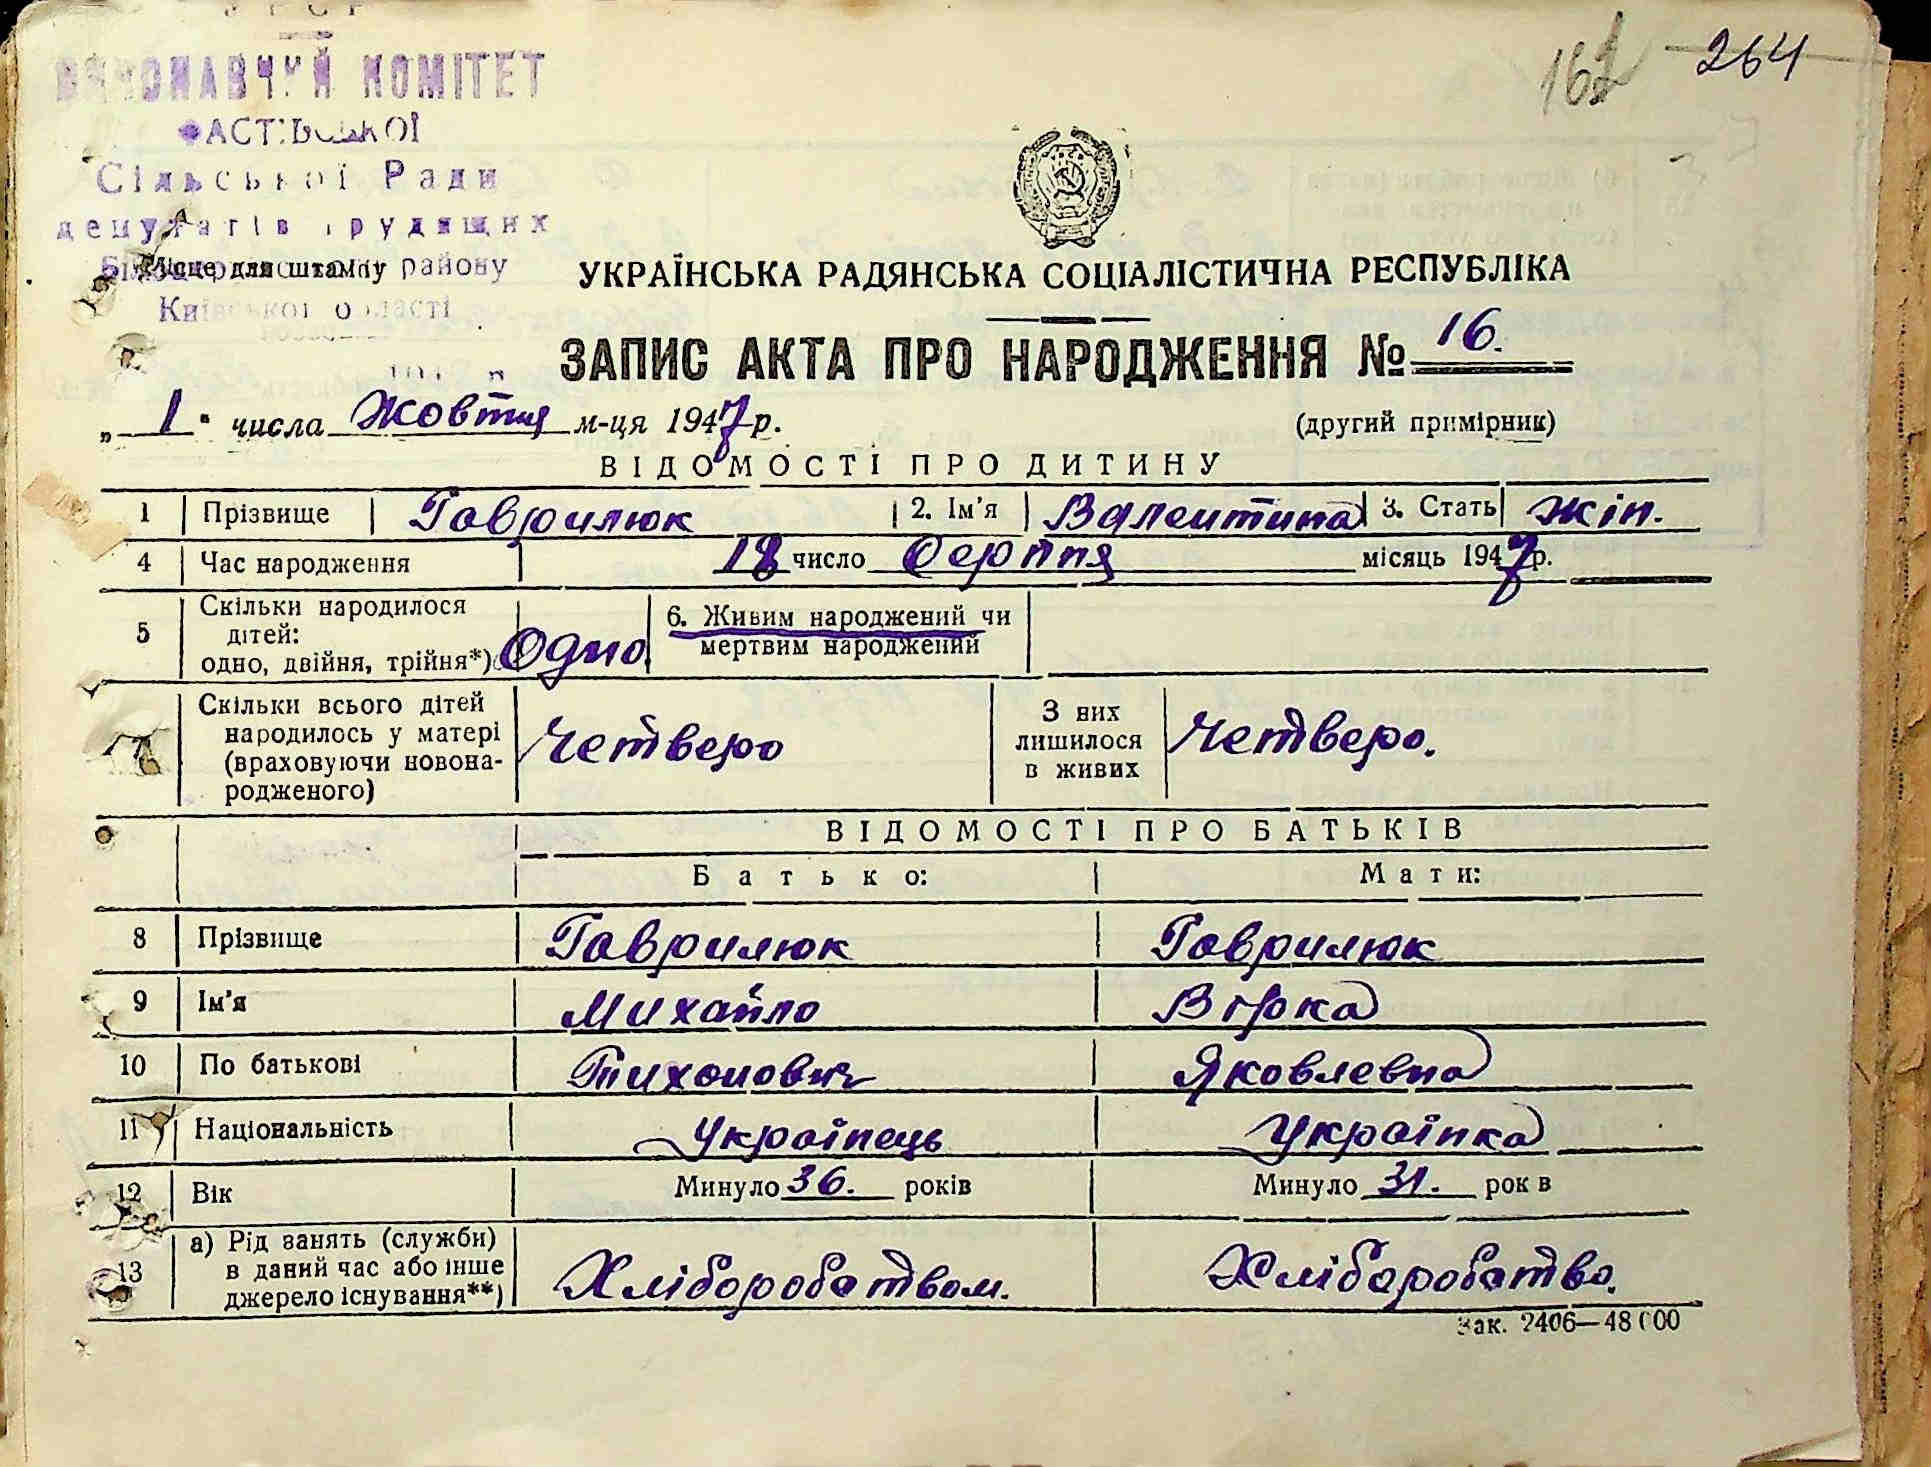 УРСР
ВИКОНАВЧИЙ КОМІТЕТ
ФАСТІВСЬКОЇ
Сільської Ради
депутатів трудящих
району
Київської області
Місце для штампу
264
УКРАЇНСЬКА РАДЯНСЬКА СОЦІАЛІСТИЧНА РЕСПУБЛІКА
ЗАПИС АКТА ПРО НАРОДЖЕННЯ № 16.
„ 1 " числа Жовтня м-ця 1947 р.
(другий примірник)
ВІДОМОСТІ ПРО ДИТИНУ
1 Прізвище Гаврилюк 2. Ім'я Валентина 3. Стать жін.
4 Час народження 18 число Серпня місяць 1947 р.
5 Скільки народилося дітей: одно, двійня, трійня*) Одно 6. Живим народжений чи мертвим народжений
Скільки всього дітей народилось у матері (враховуючи новонародженого) Четверо З них лишилося в живих Четверо.
ВІДОМОСТІ ПРО БАТЬКІВ
Батько: Мати:
8 Прізвище Гаврилюк Гаврилюк
9 Ім'я Михайло Вірка
10 По батькові Тихонович Яковлевна
11 Національність Українець Українка
12 Вік Минуло 36. років Минуло 31. рок в
13 а) Рід занять (служби) в даний час або інше джерело існування**) Хліборобством. Хліборобство.
Зак. 2406—48000